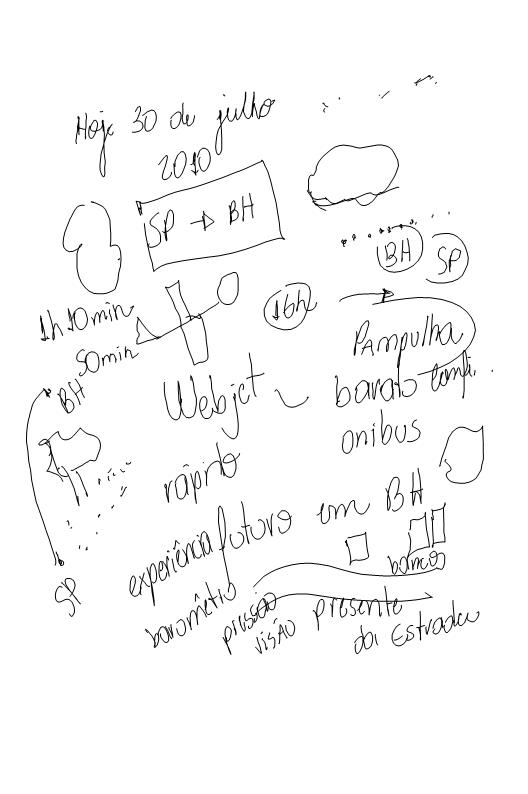 Hoje 30 de julho
2010
SP → BH
BH SP
1h10min
50min
16h
Pampulha
BH
Webjet ~ barato
onibus
rápido
experiência futuro em BH
SP
barométrio pressão presente
visão
Estrada